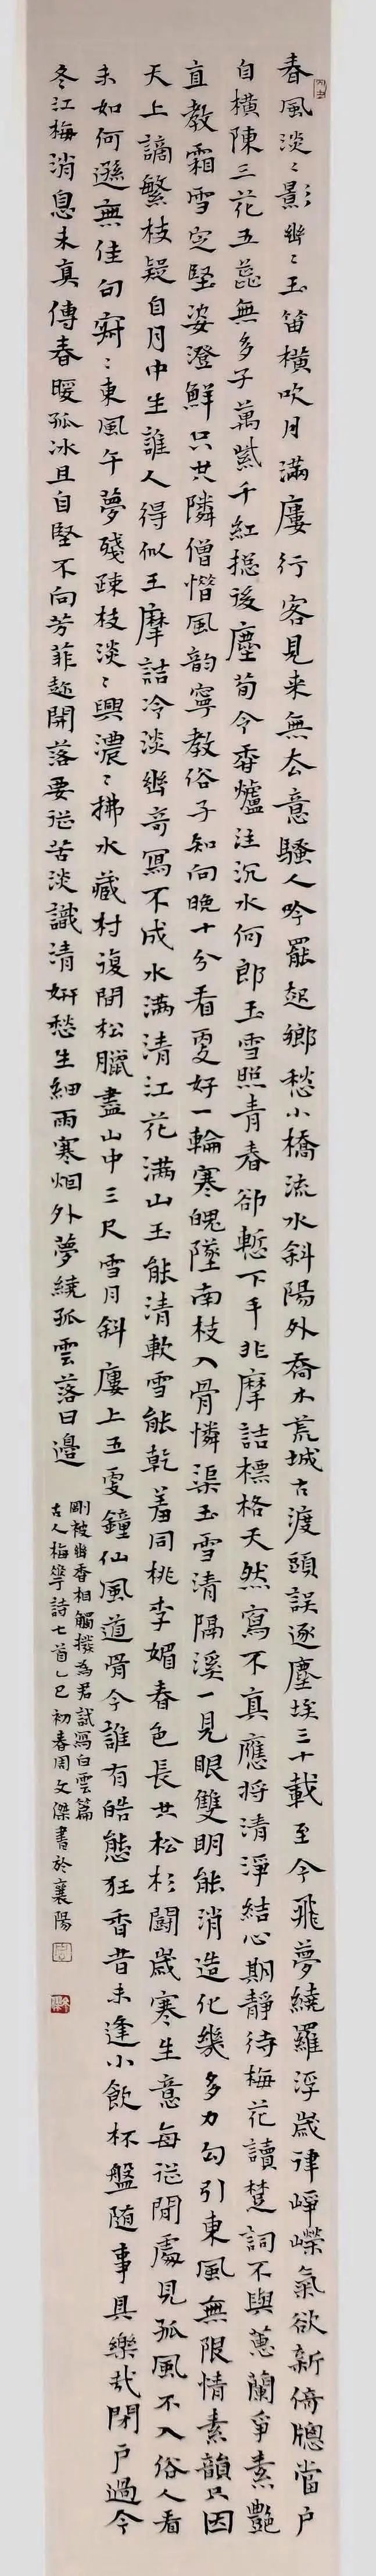 春風淡〻影幽〻玉笛橫吹月滿廔行客見来無太意騷人吟罷起鄉愁小橋流水斜陽外喬木荒城古渡頭誤逐塵埃三十載至今飛夢繞羅浮歲律崢嶸氣欲新倚牕當户
自橫陳三花五蕊無多子萬紫千紅搃後塵荀令香爐注沉水何郎玉雪照青春卻慙下手非摩詰標格天然寫不真應將清淨結心期靜待梅花讀楚詞不與蕙蘭爭素艷
直教霜雪定堅姿澄鮮只共隣僧惜風韵寧教俗子知向晚十分看更好一輪寒魄墜南枝入骨憐渠玉雪清隔溪一見眼雙明能消造化幾多力勾引東風無限情素韻只因
天上謫繁枝疑自月中生誰人得似王摩詰冷淡幽奇寫不成水滿清江花滿山玉能清軟雪能乾羞同桃李媚春色長共松杉鬪歲寒生意每從閒處見孤風不入俗人看
未如何遜無佳句窮〻東風午夢殘疎枝淡〻興濃〻拂水藏村復間松臘盡山中三尺雪月斜廔上五更鐘仙風道骨今誰有皓態狂香昔未逢小飲杯盤隨事具樂哉閉户過今
冬江梅消息未真傳春暖孤冰且自堅不向芳菲趁開落要從苦淡識清妍愁生細雨寒烟外夢繞孤雲落日邊
剛被幽香相觸撥為君試寫白雲篇
古人梅華詩七首乙巳初春周文傑書於襄陽